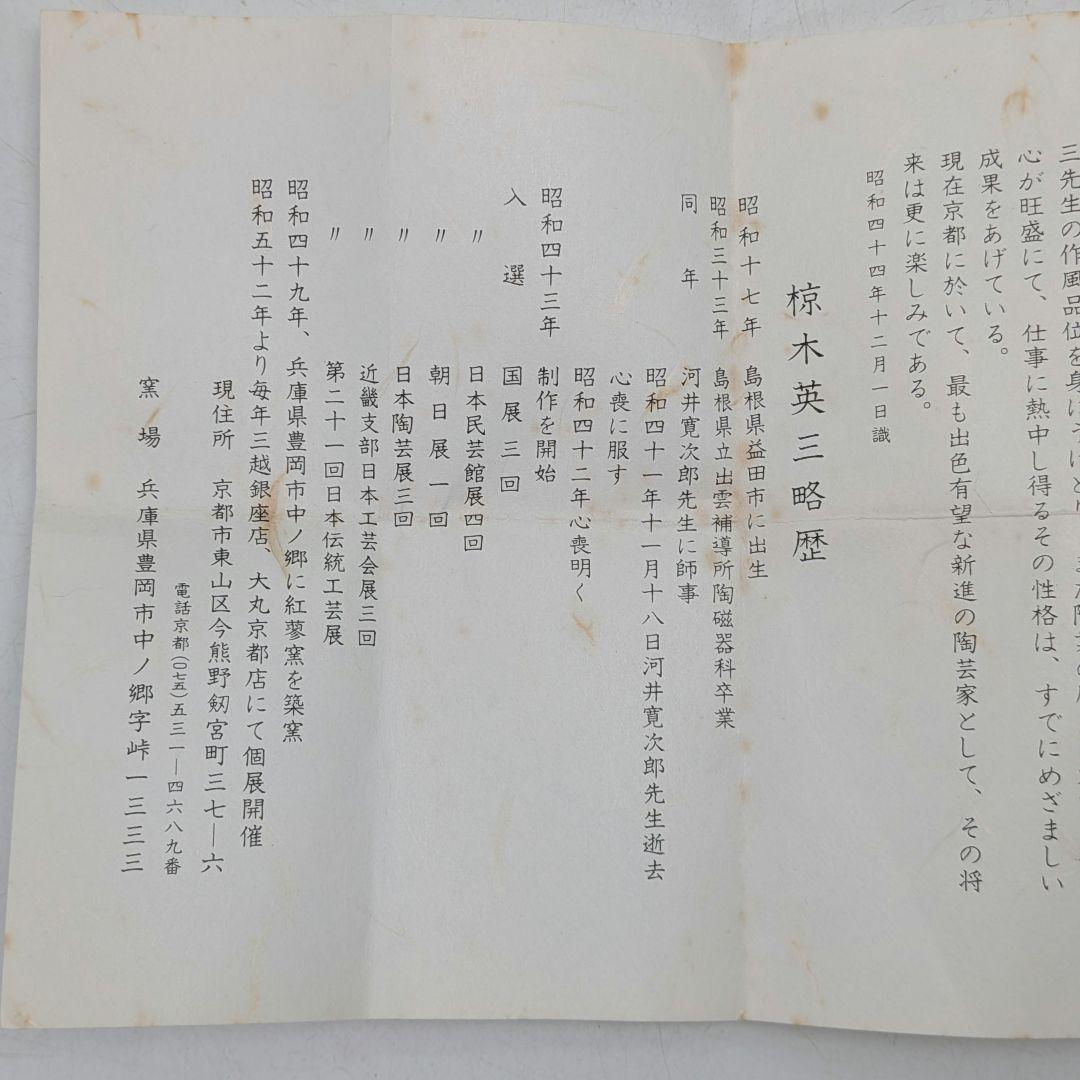 三先生の作風品位を身に
心が旺盛にて、仕事に熱中し得るその性格は、すでにめざましい
成果をあげている。
現在京都に於いて、最も出色有望な新進の陶芸家として、その将
来は更に楽しみである。
昭和四十四年十二月一日識
椋木英三略歴
昭和十七年 島根県益田市に出生
昭和三十三年 島根県立出雲補導所陶磁器科卒業
同年 河井寛次郎先生に師事
昭和四十一年十一月十八日河井寛次郎先生逝去
心喪に服す
昭和四十二年心喪明く
昭和四十三年 制作を開始
入選 国展三回
〃 日本民芸館展四回
〃 朝日展一回
〃 日本陶芸展三回
〃 近畿支部日本工芸会展三回
〃 第二十一回日本伝統工芸展
昭和四十九年、兵庫県豊岡市中ノ郷に紅蓼窯を築窯
昭和五十二年より毎年三越銀座店、大丸京都店にて個展開催
現住所 京都市東山区今熊野剱宮町三七―六
電話京都(〇七五)五三一―四六八九番
窯場 兵庫県豊岡市中ノ郷字峠一三三三